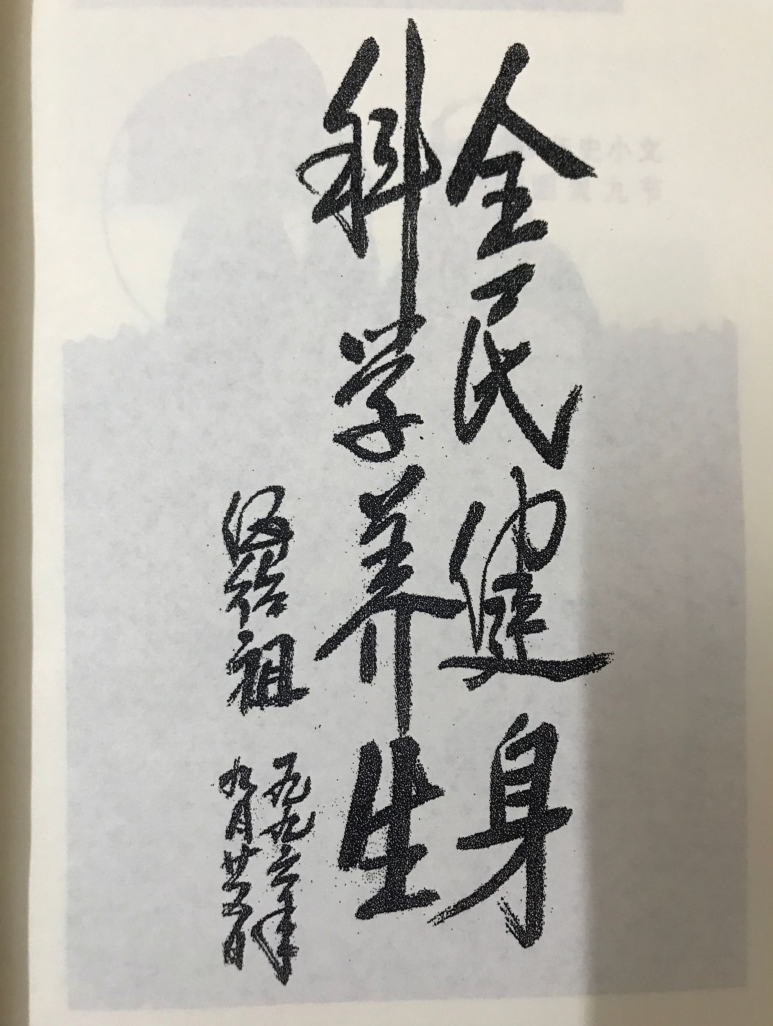 全民健身
科学养生
伍绍祖
一九九六年
九月廿五日